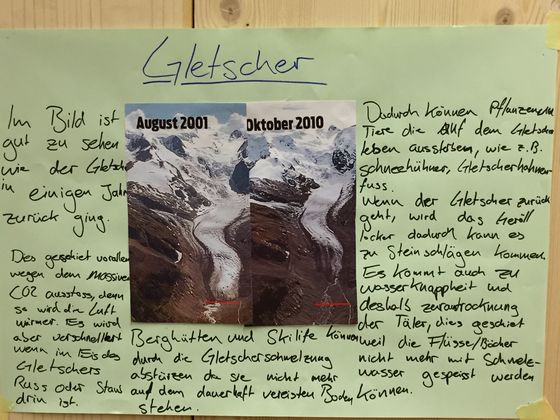 Gletscher
Im Bild ist
gut zu sehen
wie der Gletscher
in einigen Jahr
zurück ging.
Des geschiet vorallem
wegen dem massiven
CO2 ausstoss, denn
so wird die Luft
wärmer. Es wird
aber verschnellert
wenn im Eis des
Gletschers
Russ oder Staub
drin ist.
August 2001
Oktober 2010
Berghütten und Skilife können
durch die Gletscherschmelzung
abstürzen da sie nicht mehr
auf dem dauerhaft vereisten Boden
stehen.
Dadurch können Pflanzen
Tiere die auf dem Gletscher
leben aussterben, wie z.B.
schneehühner, Gletscherhahnen-
fuss.
Wenn der Gletscher zurück
geht, wird das Geröll
locker dadurch kann es
zu Steinschlägen kommen.
Es kommt auch zu
wasserknappheit und
deshalb
der Täler, dies geschiet
weil die Flüsse/Bächer
nicht mehr mit Schmelz-
wasser gespeisst werden
können.